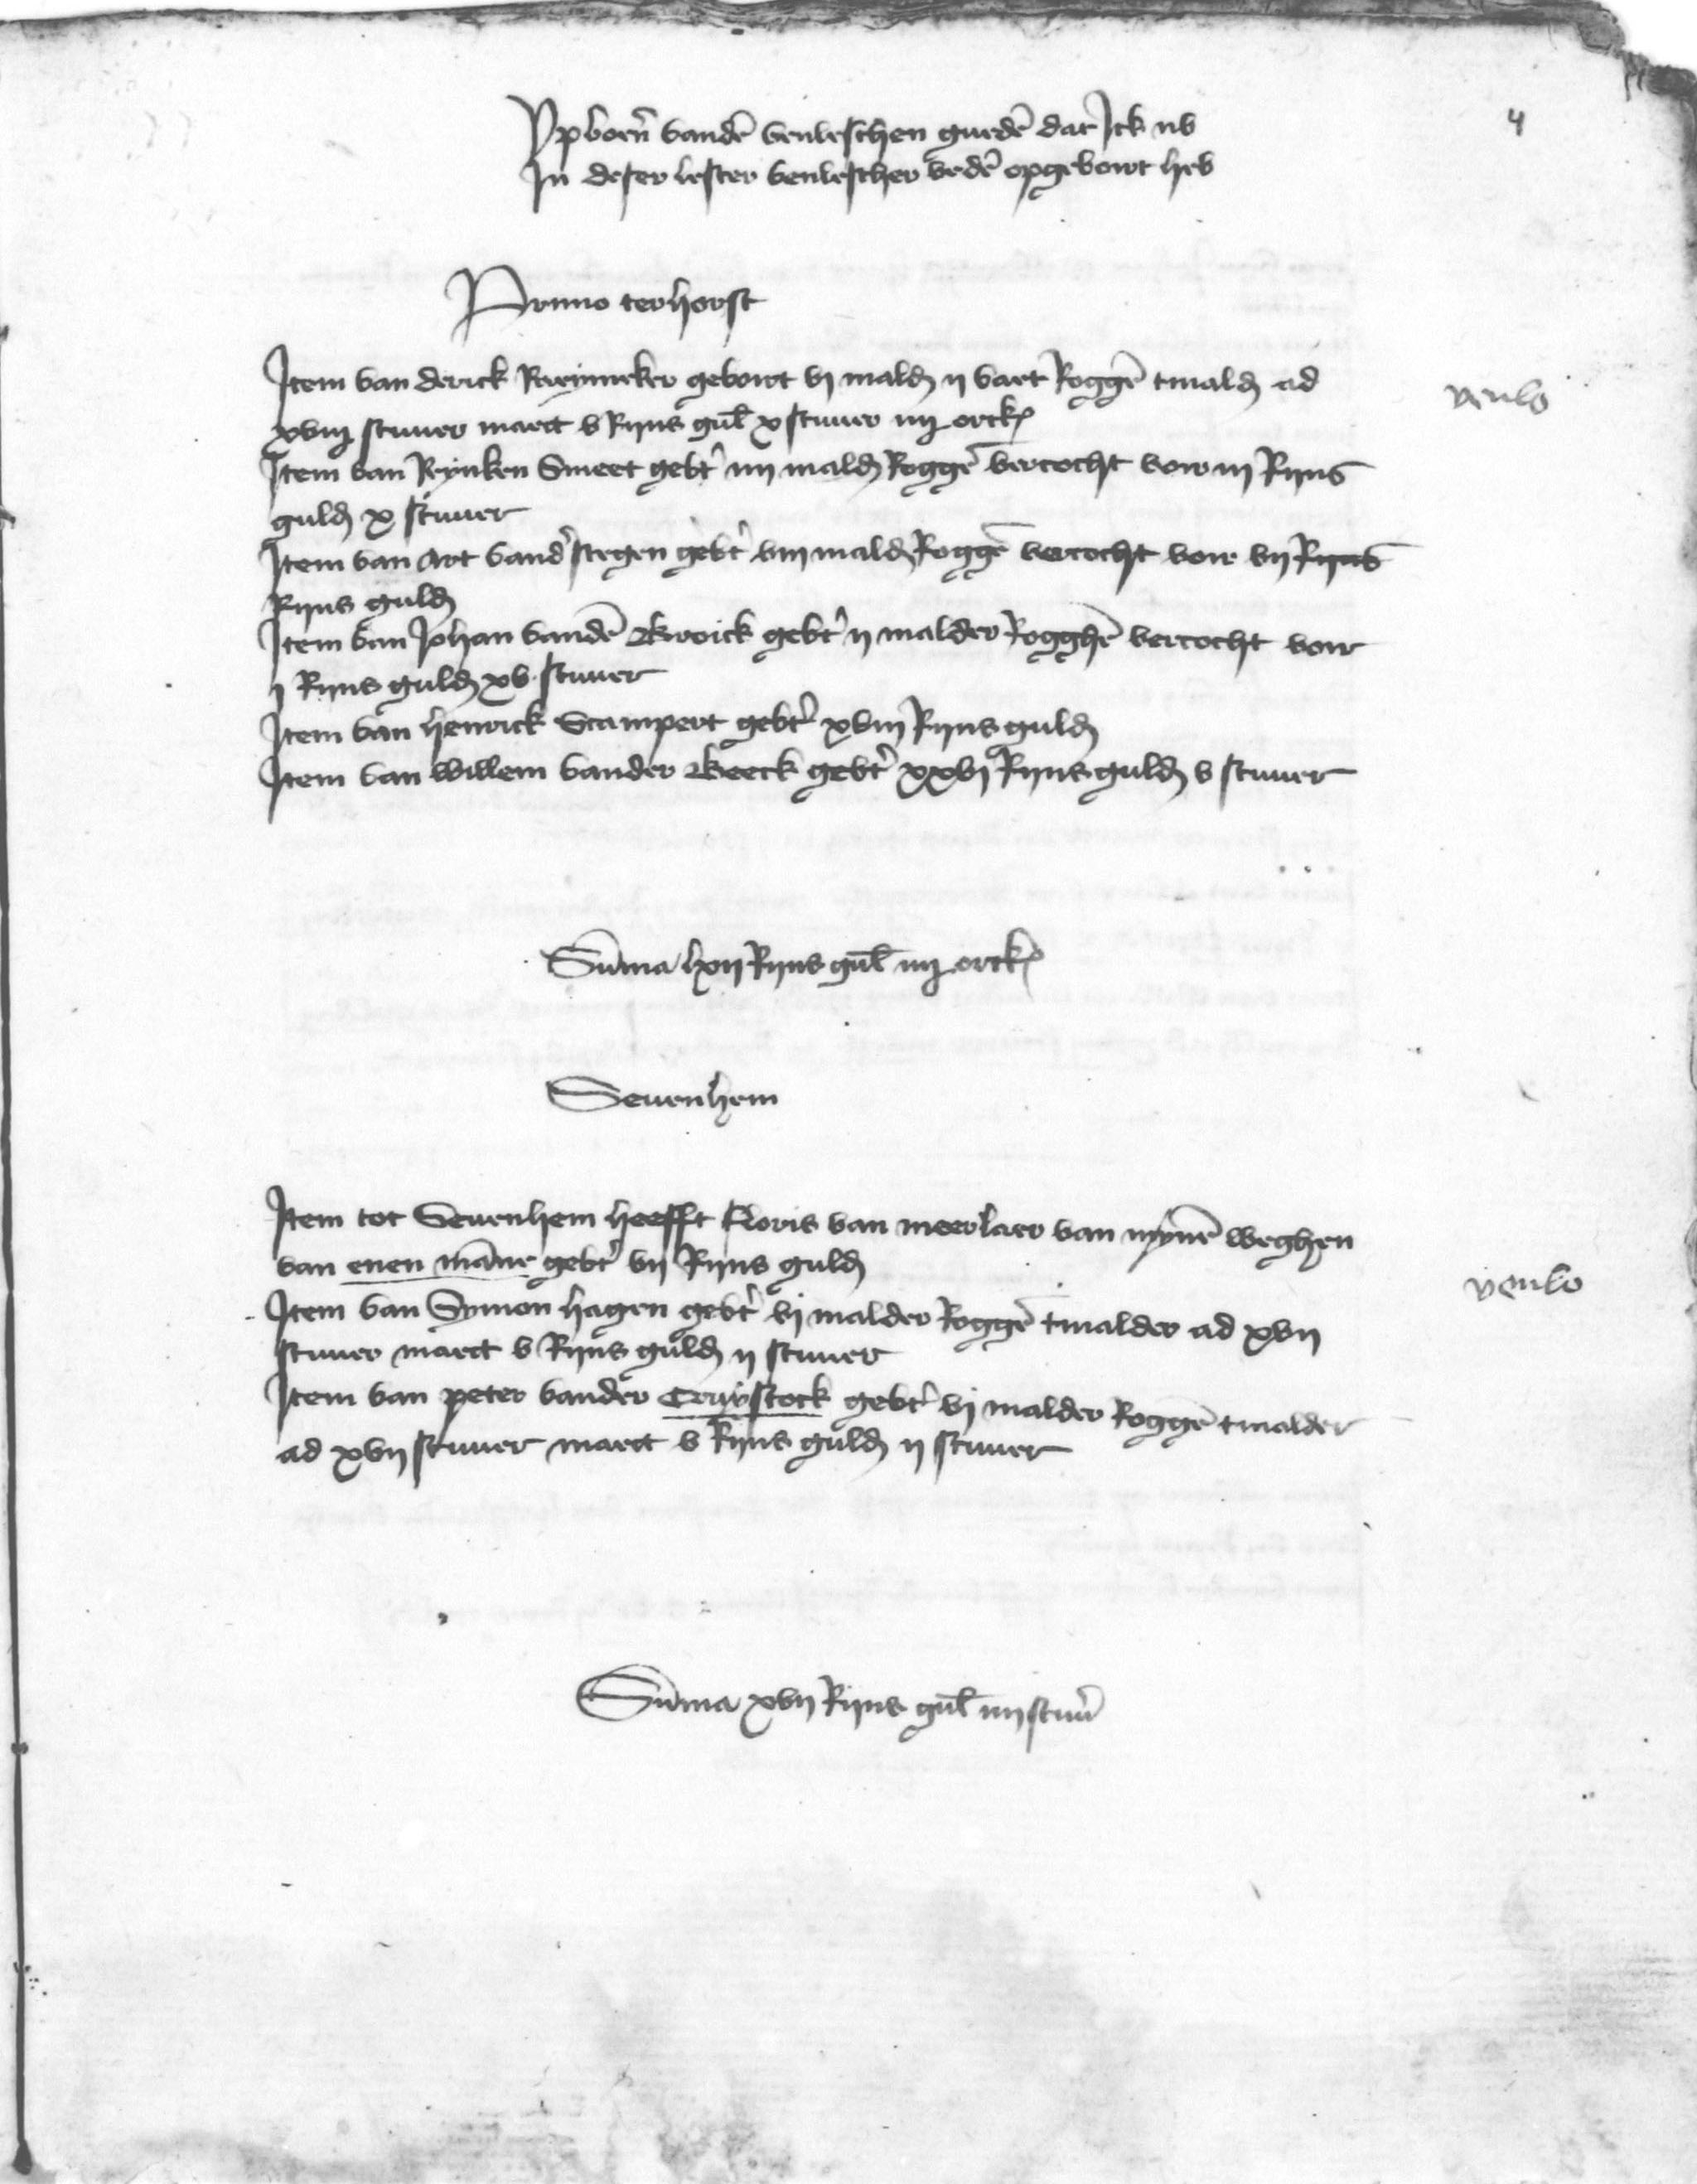 4
Upboerñ vandẽ venleschen guedẽ dat Ick nv
In deser lester venlescher vedẽ opgebort heb
Primo ter horst
Item van derick gebort vj mald ij vaet Roggẽ tmald ad
venlo
xviij stuuer maect v Rijns gul̄ x stuuer iij ortk
Item van Reynken Smeet gebt' iiij mald Roggẽ vercocht voir iij Rijns
guld x stuuer
Item van Art vand' stegen gebt' viij mald Roggẽ vercocht voir vij Rijns
Rijns guld
Item van Johan vandẽ Broick gebt' ij malder Rogghẽ vercocht voir
j Rijns guld xv stuuer
Item van henrick Stampert gebt' xviij Rijns guld
Item van Willem vander Beeck gebt' xxvj Rijns guld v stuuer
Sūma lxij Rijns gul̄ iij ortk
Seuenhem
Item tot Seuenhem heefft Floris van meerlaer van mynẽ weghen
van enen māne gebt' vij Rijns guld
venlo
Item van Symon hagen gebt' vj malder Roggẽ tmalder ad xvij
stuuer maect v Rijns guld ij stuuer
Item van peter vander Cruystock gebt' vj malder Roggẽ tmalder
ad xvij stuuer maect v Rijns guld ij stuuer
Sūma xvij Rijns gul̄ iiij stuu'